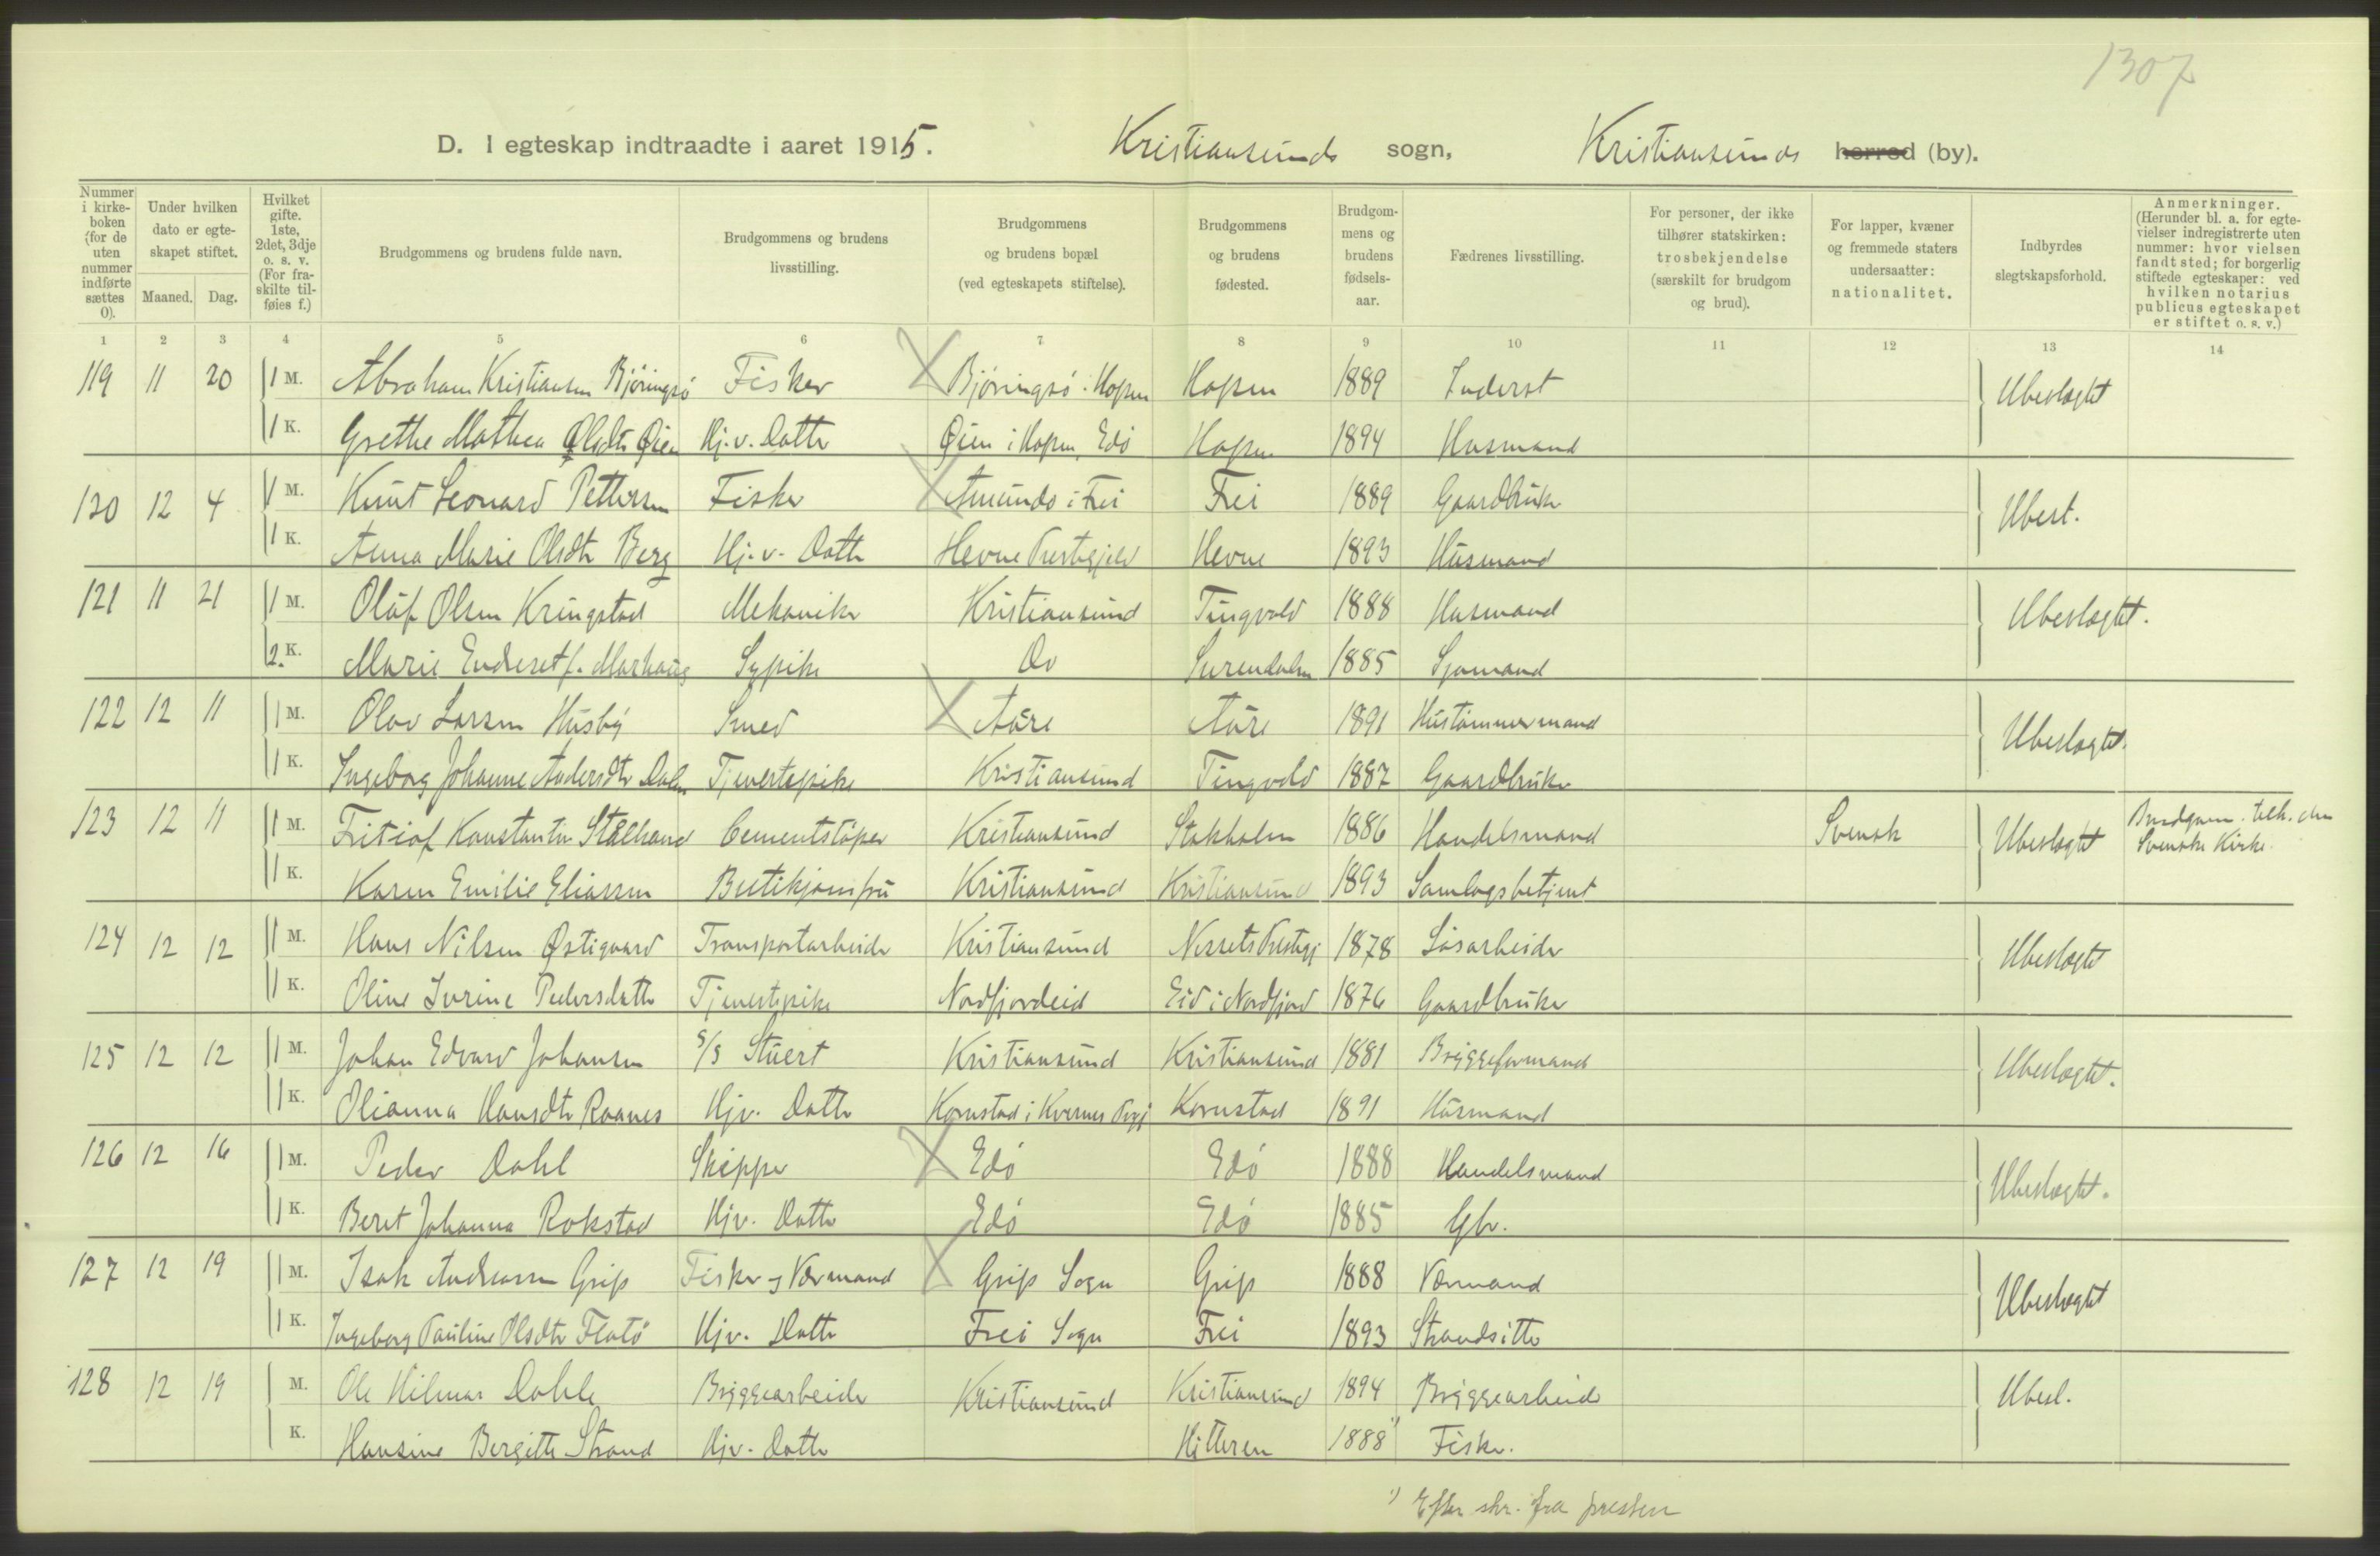 1307
D. I egteskap indtraadte i aaret 1915. Kristiansunds sogn, Kristiansunds herred (by).
Nummer i kirkeboken (for de uten nummer indførte sættes 0). | Under hvilken dato er egteskapet stiftet. Maaned. Dag. | Hvilket gifte. 1ste, 2det, 3dje o. s. v. (For fraskilte tilføies f.) | Brudgommens og brudens fulde navn. | Brudgommens og brudens livsstilling. | Brudgommens og brudens bopæl (ved egteskapets stiftelse). | Brudgommens og brudens fødested. | Brudgommens og brudens fødselsaar. | Fædrenes livsstilling. | For personer, der ikke tilhører statskirken: trosbekjendelse (særskilt for brudgom og brud). | For lapper, kvæner og fremmede staters undersaatter: nationalitet. | Indbyrdes slegtskapsforhold. | Anmerkninger. (Herunder bl. a. for egtevielser indregistrerte uten nummer: hvor vielsen fandt sted; for borgerlig stiftede egteskaper: ved hvilken notarius publicus egteskapet er stiftet o. s. v.)
1 2 3 4 5 6 7 8 9 10 11 12 13 14
119 11 20 1 M. Abraham Kristiansen Bjøringsø Fisker Bjøringsø. Hopen Hopen 1889 Inderst Ubeslægtet
1 K. Grethe Mathea Olsdtr Øien Hj.v. Datter Øien i Hopen, Edø Hopen 1894 Husmand
120 12 4 1 M. Knut Leonard Pettersen Fisker Amundø i Frei Frei 1889 Gaardbruker Ubesl.
1 K. Anna Marie Olsdtr Berg Hj.v. Datter Hevne Prestegjeld Hevne 1893 Husmand
121 11 21 1 M. Oluf Olsen Kringstad Mekaniker Kristiansund Tingvold 1888 Husmand Ubeslægtet.
2. K. Marie Enderset f. Marhaug Sypike Do Surendalen 1885 Sjømand
122 12 11 1 M. Olav Larsen Husby Smed Aure Aure 1891 Hustømmermand Ubeslægtet.
1 K. Ingeborg Johanne Andersdtr Dalen Tjenestepike Kristiansund Tingvold 1887 Gaardbruker
123 12 11 1 M. Fritiof Konstantin Stålhand Cementstøper Kristiansund Stokholm 1886 Handelsmand Svensk Ubeslægtet Brudgom. tilh. den Svenske Kirke.
1 K. Karen Emilie Eliassen Butikjomfru Kristiansund Kristiansund 1893 Samlagsbetjent
124 12 12 1 M. Hans Nilsen Østigaard Transportarbeider Kristiansund Nessets Prestegj 1878 Løsarbeider Ubeslægtet
1 K. Oline Iverine Pedersdatter Tjenestepike Nordfjordeid Eid i Nordfjord 1876 Gaardbruker
125 12 12 1 M. Johan Edvard Johansen S/S Stuert Kristiansund Kristiansund 1881 Bryggeformand Ubeslægtet.
1 K. Olianna Hansdtr Raanes Hjv. Datter Kornstad i Kvernes Prgj Kornstad 1891 Husmand
126 12 16 1 M. Peder Dahl Skipper Edø Edø 1888 Handelsmand Ubeslægtet.
1 K. Beret Johanna Rokstad Hjv. Datter Edø Edø 1885 Gbr.
127 12 19 1 M. Isak Andreassen Grip Fisker og Værmand Grip Sogn Grip 1888 Værmand Ubeslægtet
1 K. Ingeborg Pauline Olsdtr Flatø Hjv. Datter Frei Sogn Frei 1893 Strandsitter
128 12 19 M. Ole Hilmar Dahle Bryggearbeider Kristiansund Kristiansund 1894 Bryggearbeider Ubesl.
K. Hansine Bergitte Strand Hjv. Datter Hitteren 1888 1) Fisker.
1) Efter skr. fra presten